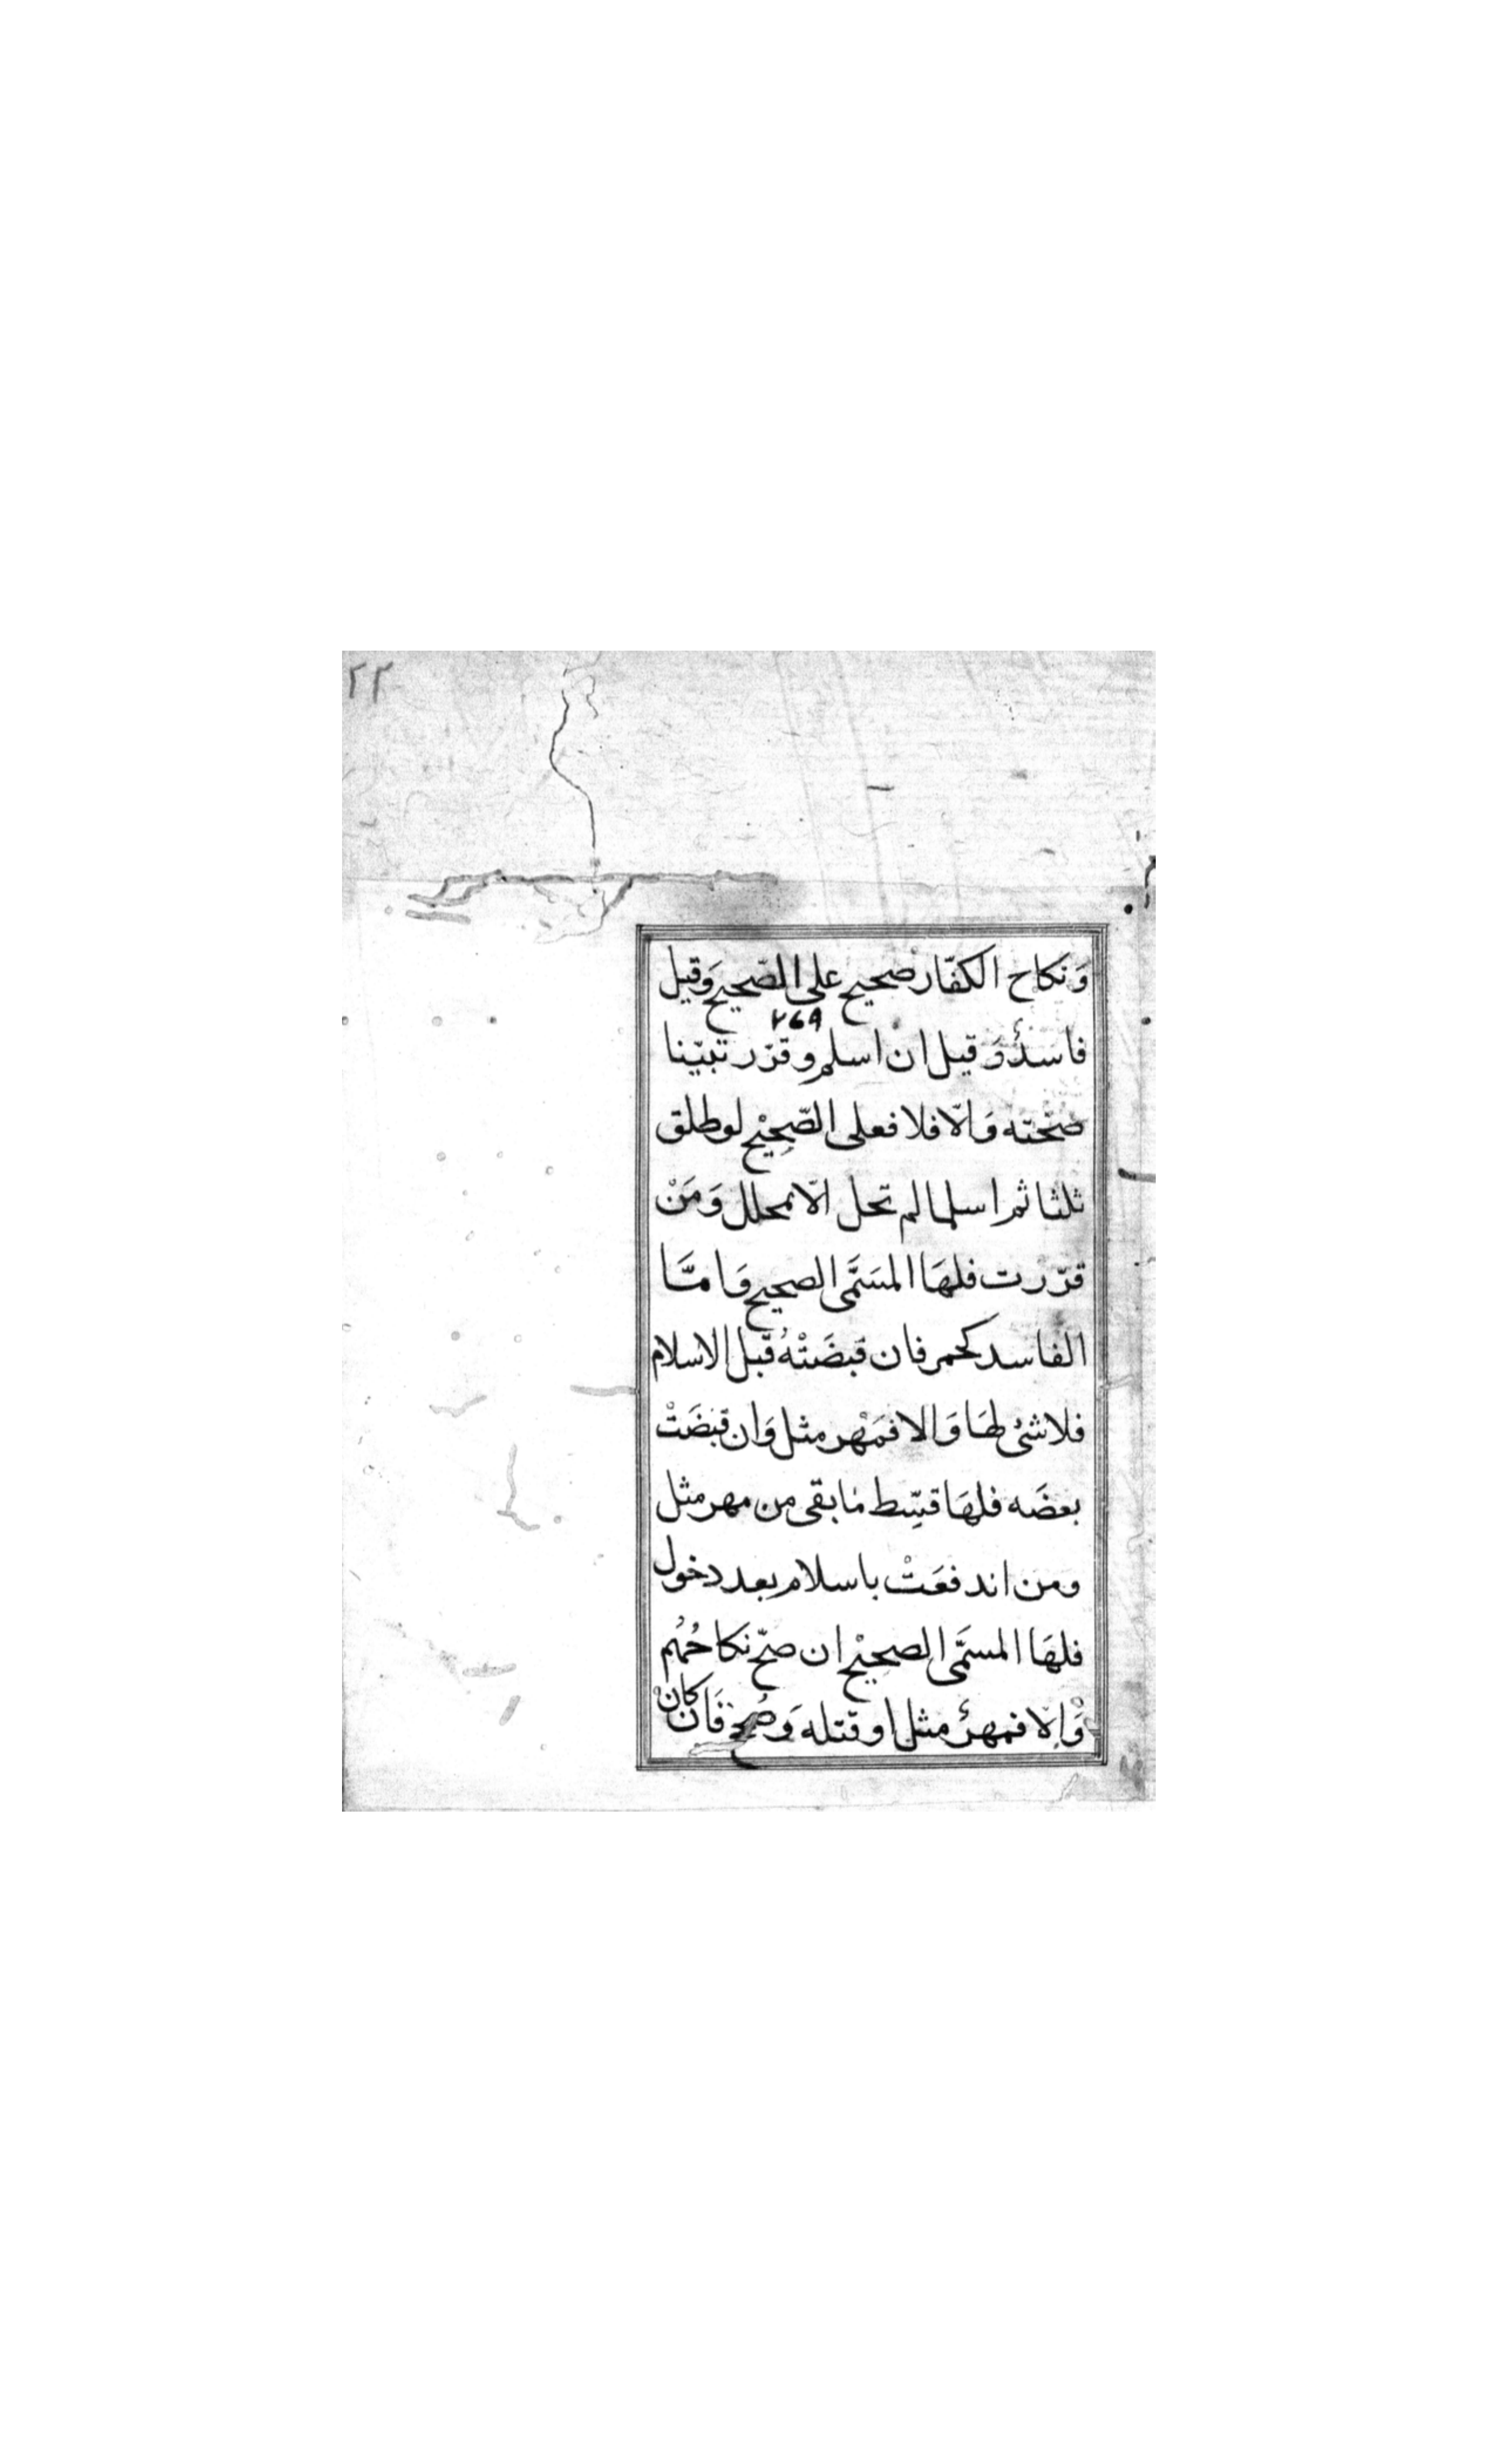 ٢٣
وَنكاح الكفّار صحيح على الصّحيح وَقيل
٢٦٩
فاسدٌ وَقيل ان اسلم وقرّر تبيّنا
صحّته وَالّا فلا فعلى الصّحِيْح لو طلق
ثلثا ثم اسلما لم تحل الّا بمحلل وَمَنْ
قرّرت فلهَا المسَمَّى الصحيح وَامّا
الفاسد كخمر فان قبضَتْهُ قبل الاسلام
فلا شئ لهَا وَالا فمَهْر مثل وَان قبضَتْ
بعضَه فلهَا قِسّط مَا بقى من مهر مثل
ومن اندفعَتْ باسلام بعد دخول
فلهَا المسمَّى الصحِيْح ان صحّ نكاحُهُم
وَالّا فمهرُ مثل او قتله وَصُحِّ فَان كانْ